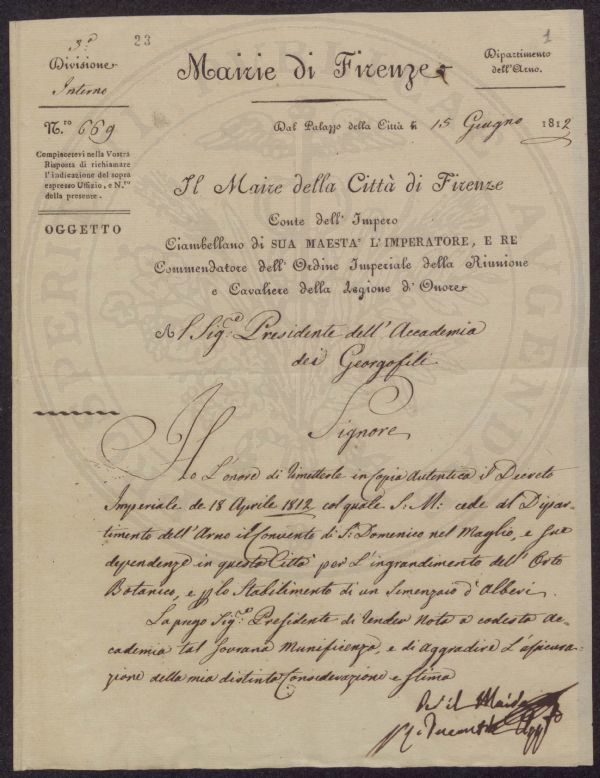 3.a
23
1
Divisione
Interno
Mairie di Firenze
Dipartimento
dell'Arno.
N.ro 669
Dal Palazzo della Città li 15 Giugno 1812
Compiacetevi nella Vostra
Risposta di richiamare
l'indicazione del sopra
espresso Uffizio, e N.ro
della presente.
OGGETTO
Il Maire della Città di Firenze
Conte dell' Impero
Ciambellano di SUA MAESTA' L'IMPERATORE, E RE
Commendatore dell' Ordine Imperiale della Riunione
e Cavaliere della Legione d' Onore
Al Sig.re Presidente dell'Accademia
dei Georgofili
Signore
Ho L'onore di rimetterle in Copia Autentica il Decreto
Imperiale de 18 Aprile 1812 col quale S. M: cede al Dipar-
timento dell'Arno il Convento di S: Domenico nel Maglio, e sue
dependenze in questa Città per L'ingrandimento dell' Orto
Botanico, e p lo Stabilimento di un Semenzaio d'Alberi.
La prego Sig.re Presidente di render Nota a codesta Ac-
cademia tal Sovrana Munificenza, e di aggradire L'assicura-
zione della mia distinta Considerazione e stima
Per il Maire